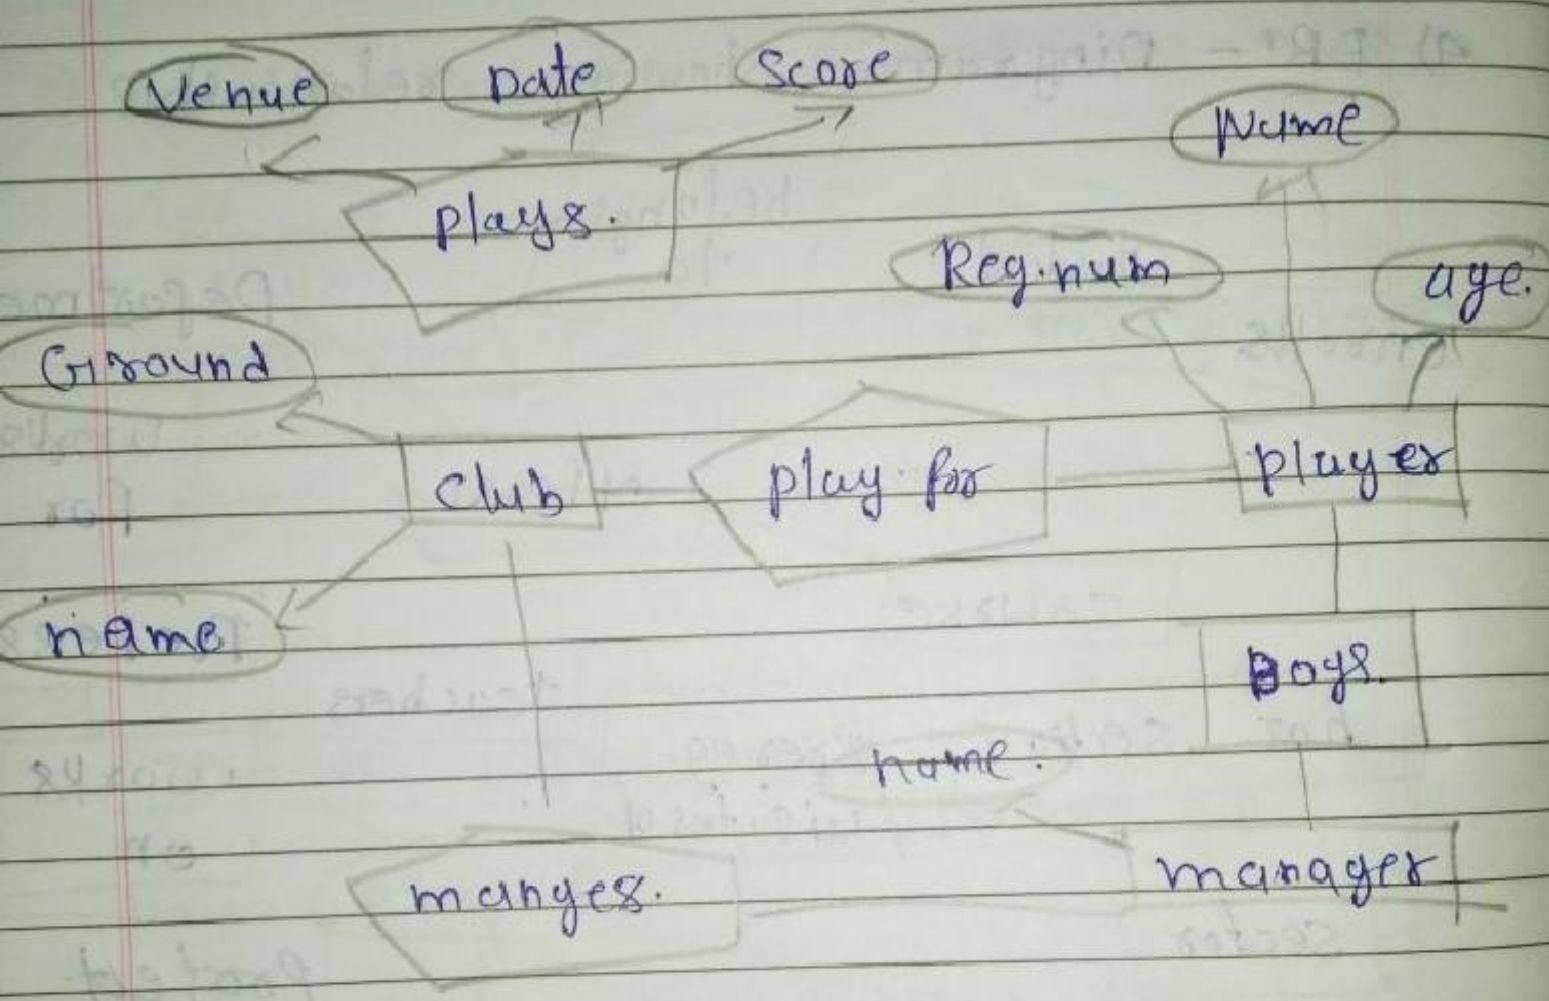 Venue Date Score
Name
plays.
Reg.num age.
Ground
Club play for player
name
Boys.
name.
manges. manager